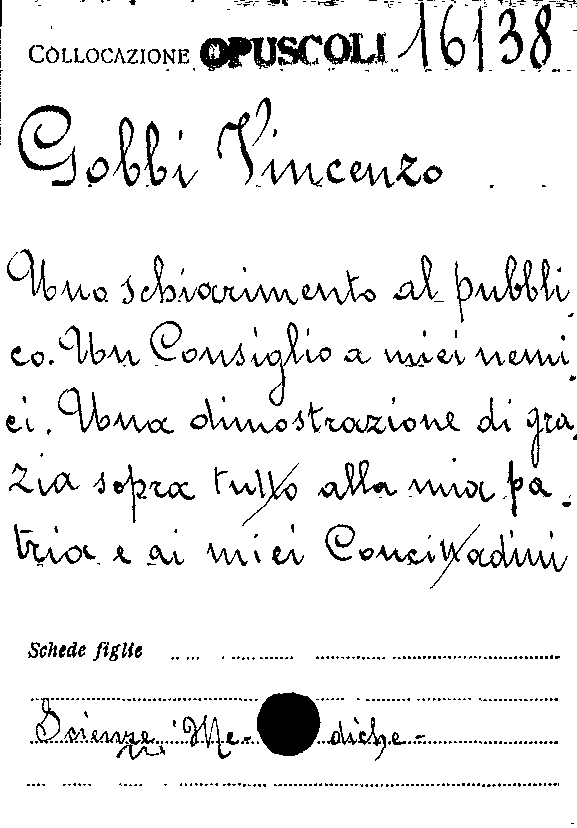 COLLOCAZIONE OPUSCOLI 16138
Gobbi Vincenzo
Uno schiarimento al pubbli
co. Un Consiglio a miei nemi
ci. Una dimostrazione di gra-
zia sopra tutto alla mia pa-
tria e ai miei Concittadini
Schede figlie
Scienze Me- diche -